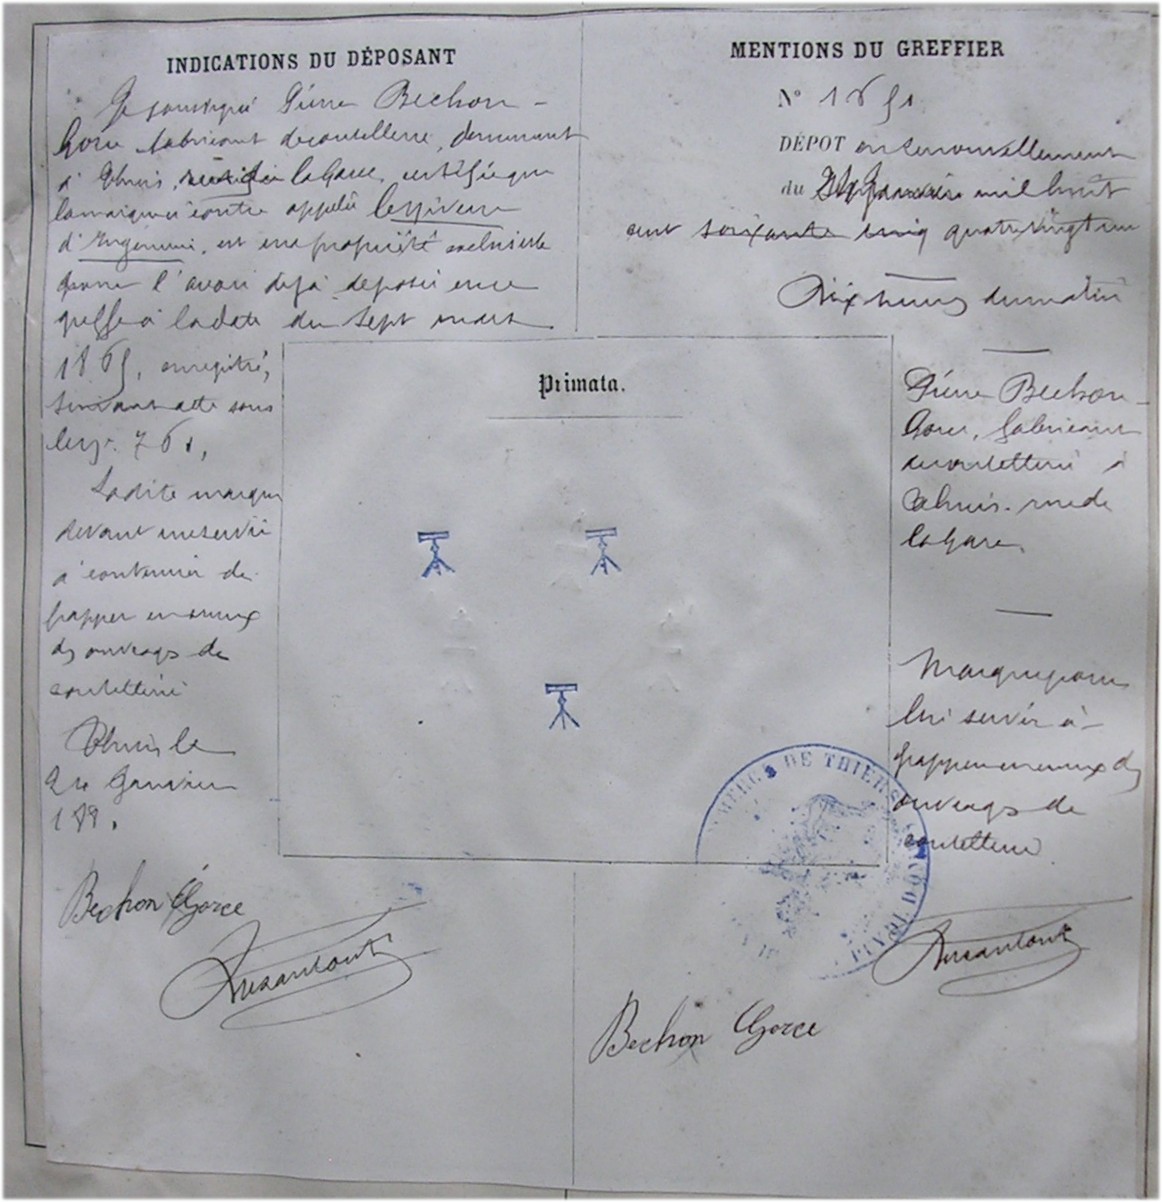 INDICATIONS DU DÉPOSANT
Je soussigné Pierre Bechon-
Gorce fabricant de coutellerie, demeurant
à Thiers, la Gare, certifie que
la marque ci contre appelée le niveau
d'Ingénieur, est ma propriété exclusive
pour l'avoir déjà déposée
greffe à la date du sept mars
1865, enregistré,
suivant acte sous
le n° 761,
Ladite marque
devant me servir
à continuer de
frapper
ds ouvrags de
coutellerie
Thiers le
Janvier
Bechon Gorce
MENTIONS DU GREFFIER
N° 1651
DÉPOT en renouvellement
du Janvier mil huit
cent soixante cinq quatre vingt un
Dix heures du matin
Pierre Bechon-
Gorce, fabricant
de coutellerie à
Thiers. rue de
la Gare.
Marque pour
lui servir à
frapper ds
ouvrags de
coutellerie.
Primata.
DE THIERS
Bechon Gorce